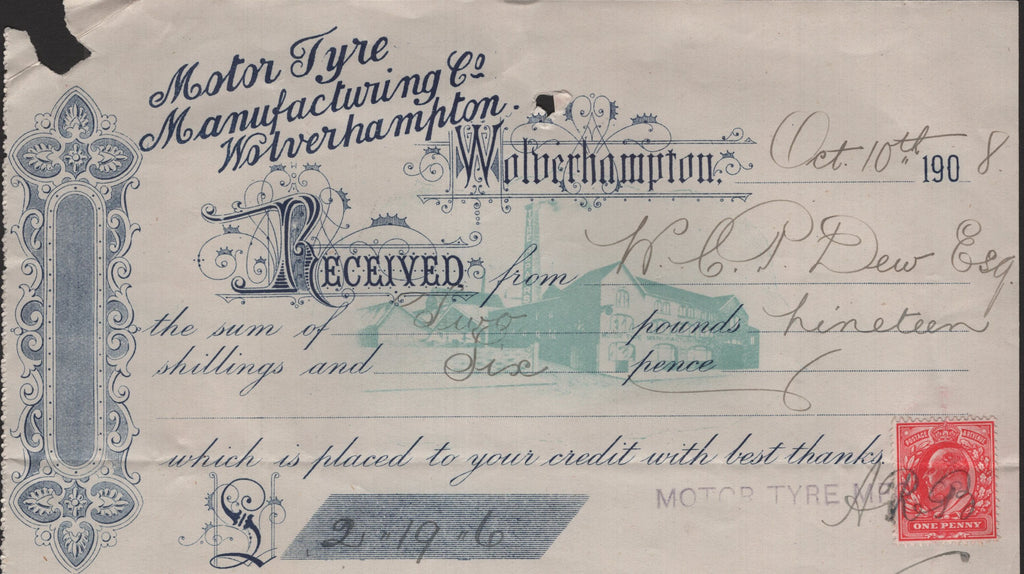 Motor Tyre
Manufacturing Co
Wolverhampton.
Wolverhampton. Oct. 10th 1908.
Received from W. C. P Dew Esq.
the sum of Two pounds nineteen
shillings and Six pence
which is placed to your credit with best thanks.
£ 2 " 19 " 6
MOTOR TYRE
POSTAGE REVENUE
ONE PENNY